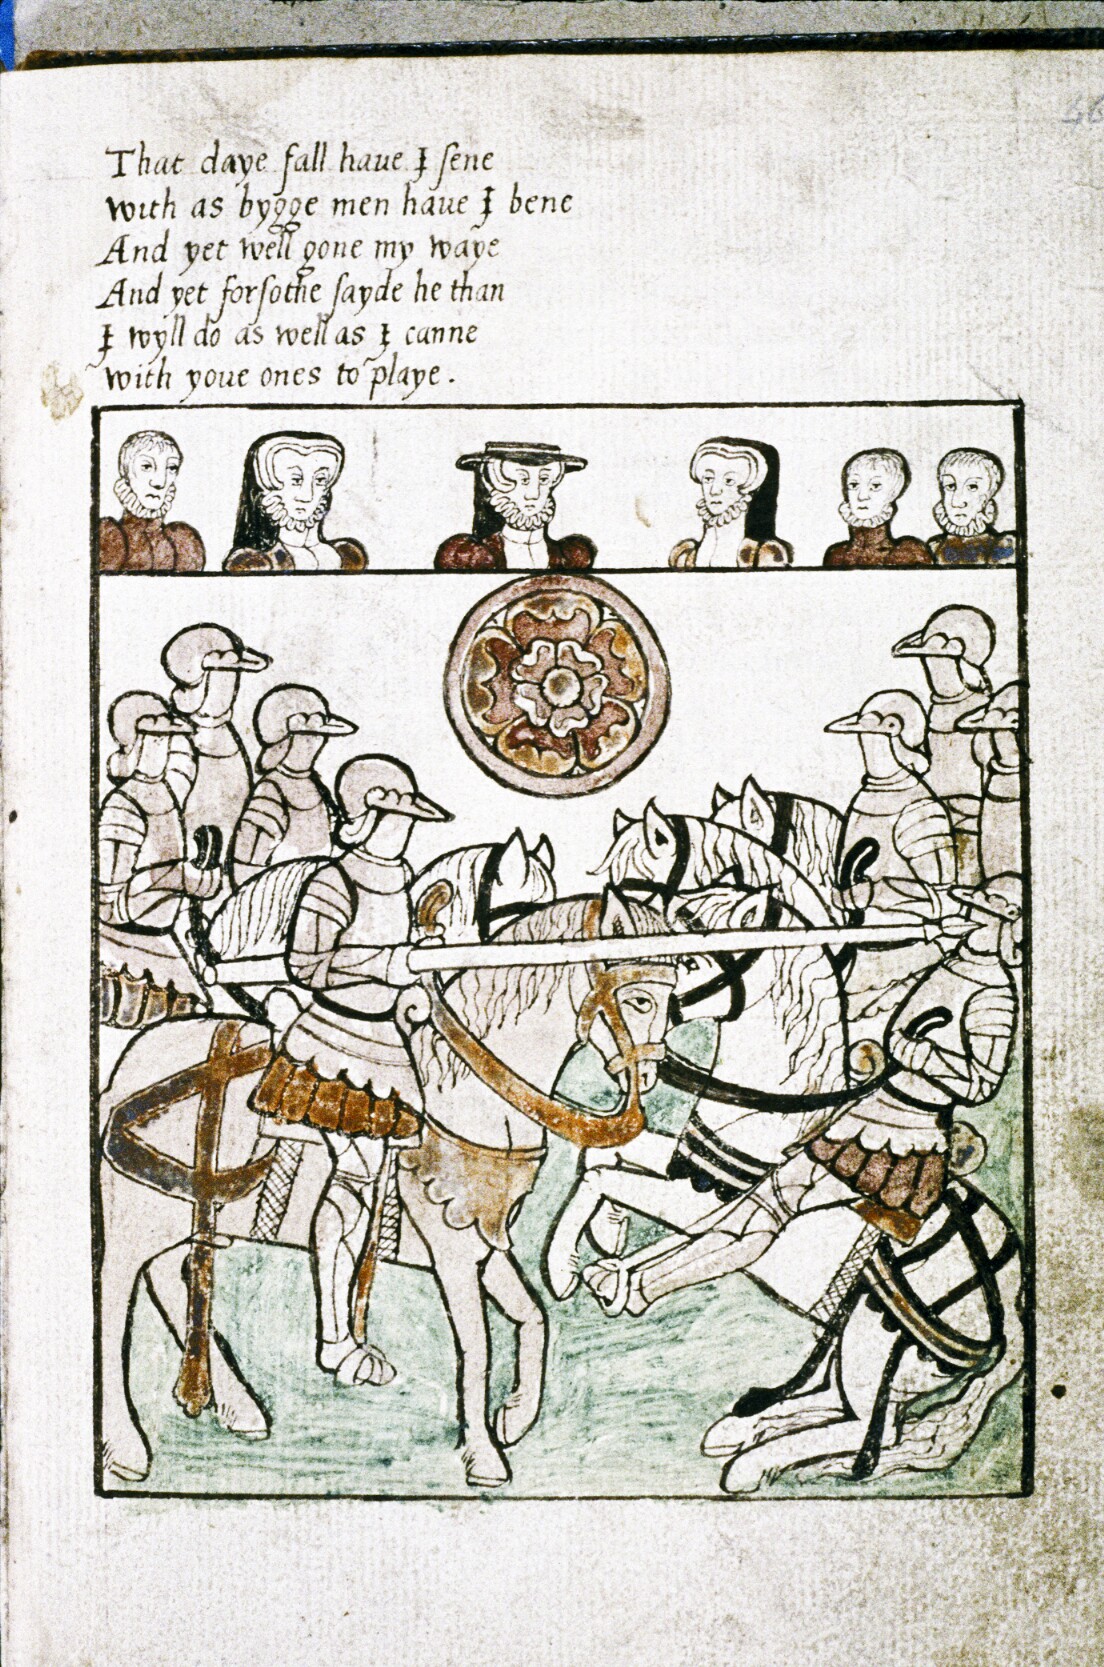 That daye fall haue I sene
with as bygge men haue I bene
And yet well gone my waye
And yet forsothe sayde he than
I wyll do as well as I canne
with youe ones to playe.